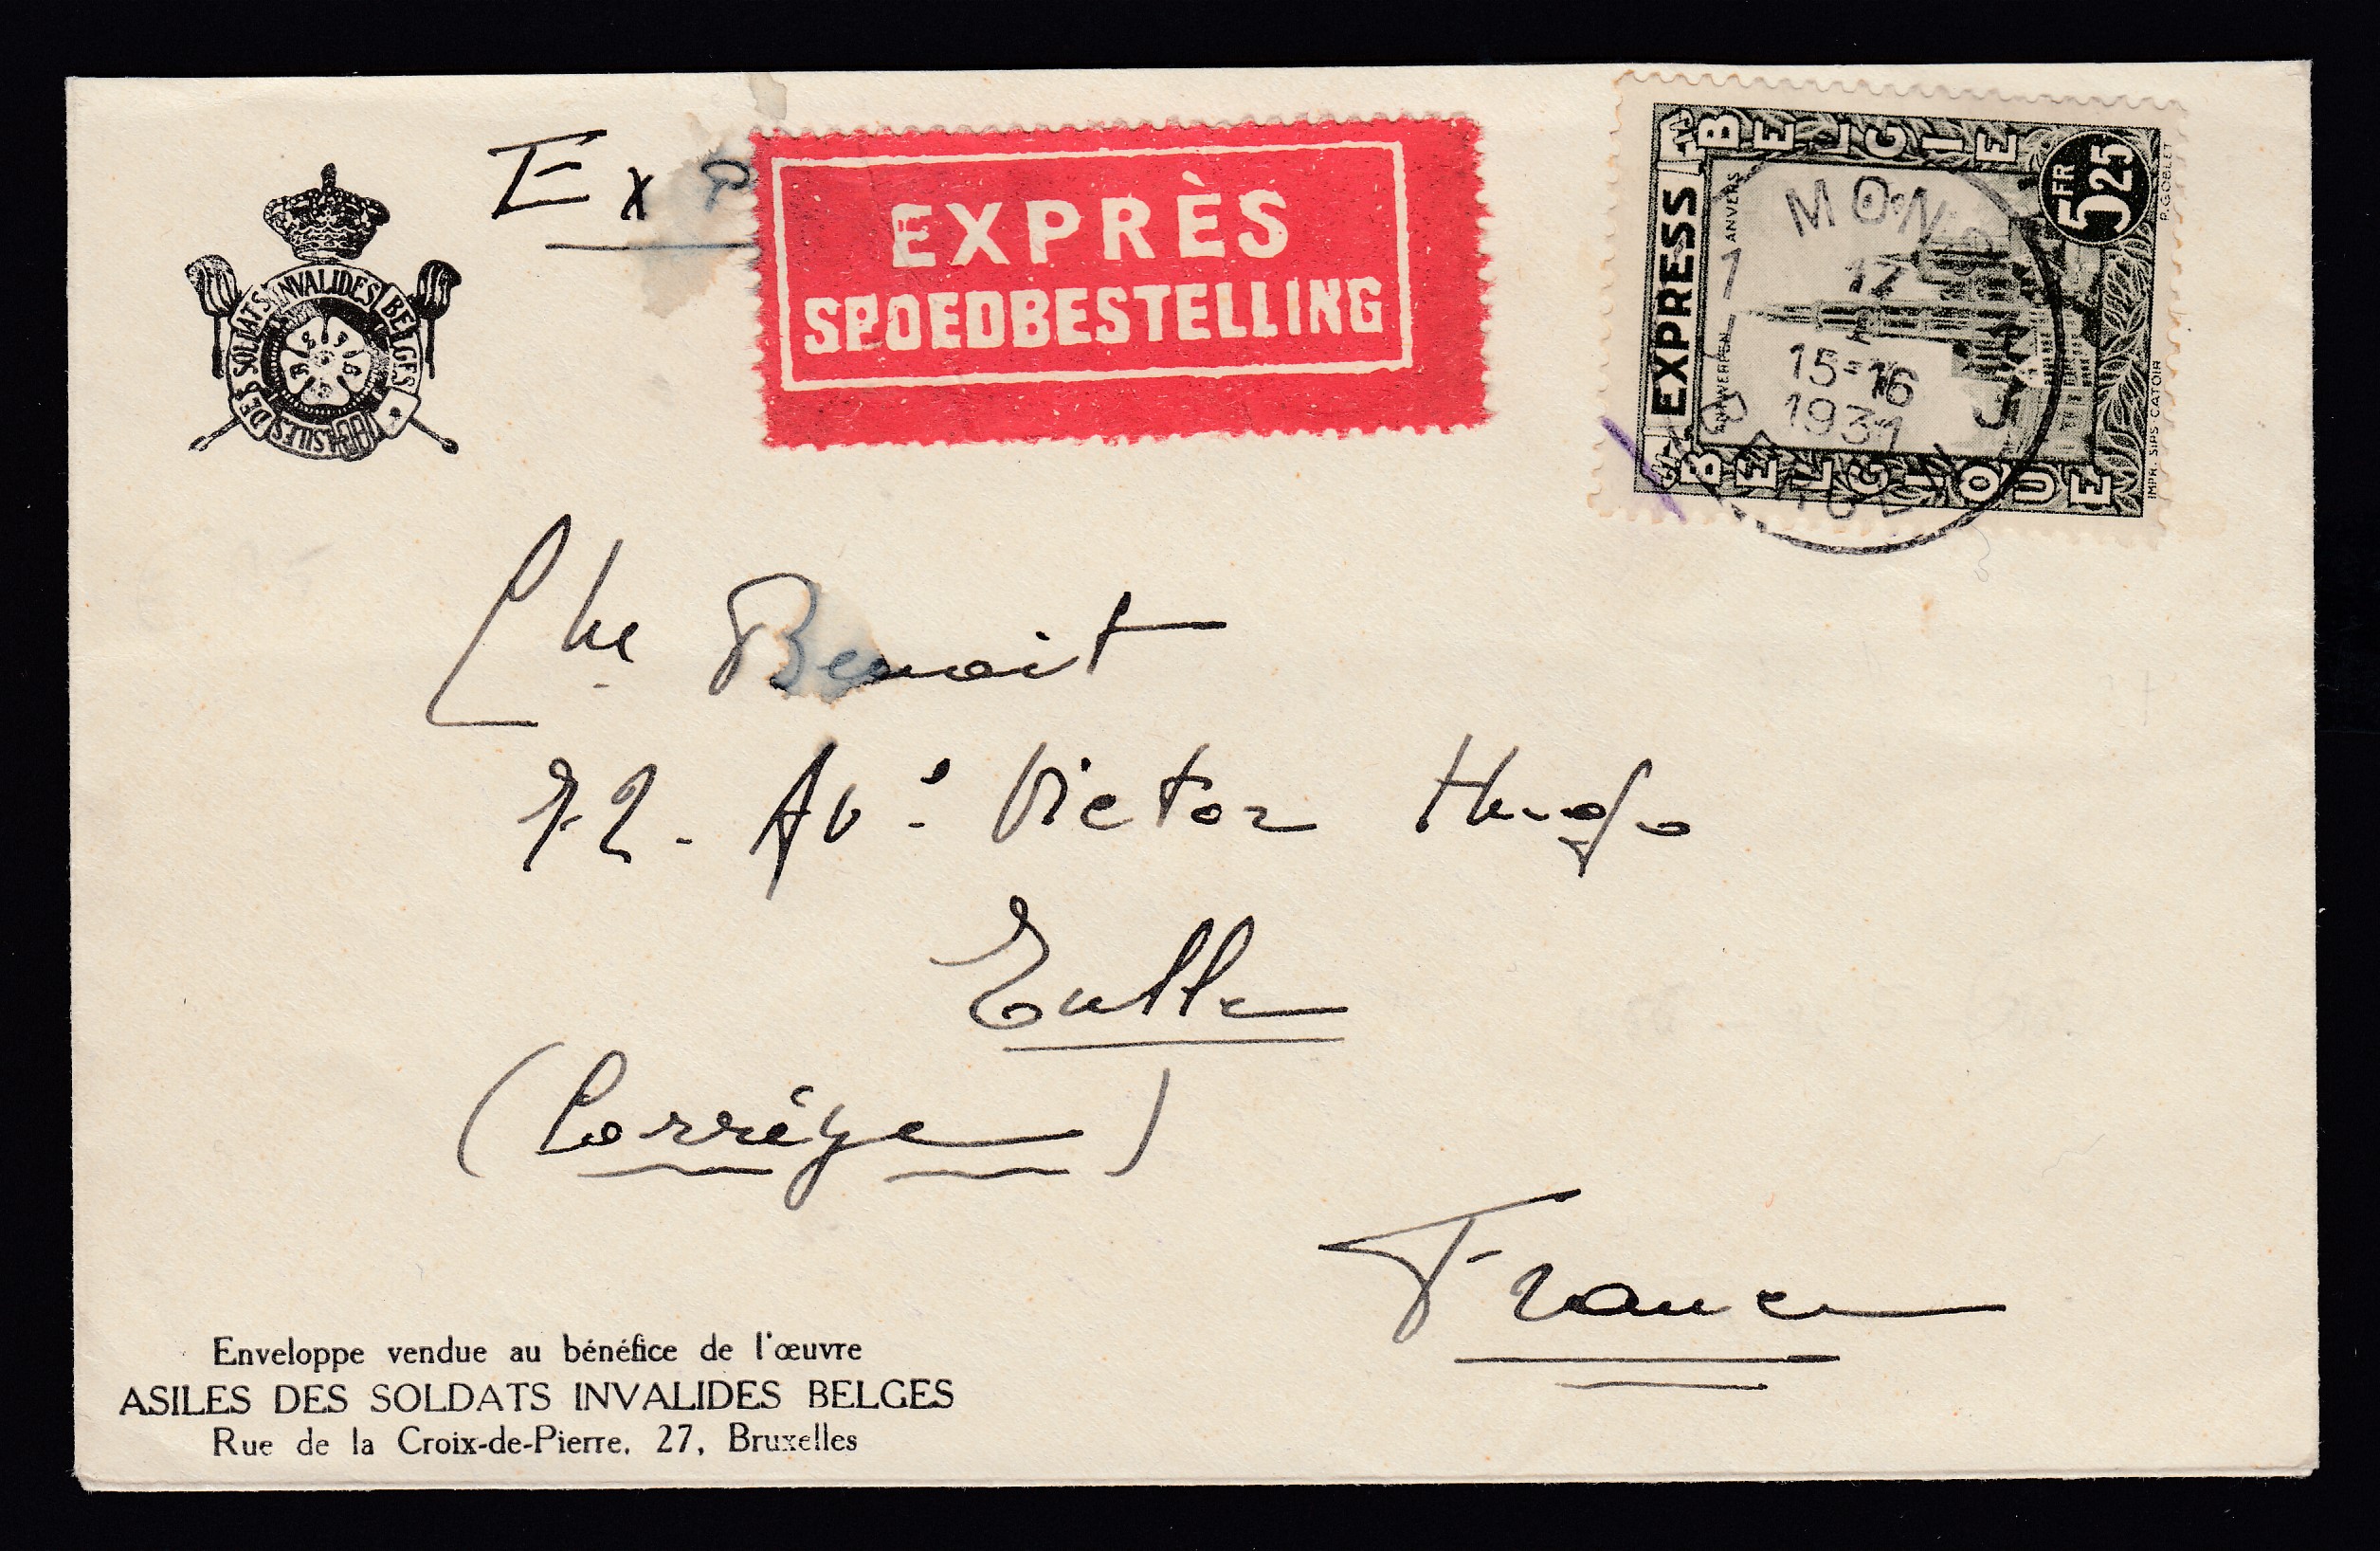 Exp
EXPRÈS
SPOEDBESTELLING
ASILES DES SOLDATS INVALIDES BELGES
EXPRESS
BELGIË
5 FR 25
ANVERS
ANTWERPEN
BELGIQUE
P. GOBLET
IMPR. SIPS CATOIR
MONS
1
17
15-16
1931
Ch. Benoit
72. Av. Victor Hugo
Tulle
(Corrèze)
France
Enveloppe vendue au bénéfice de l'œuvre
ASILES DES SOLDATS INVALIDES BELGES
Rue de la Croix-de-Pierre, 27, Bruxelles